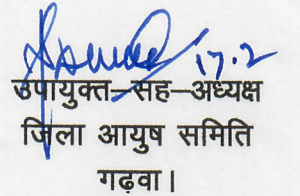 17.2
उपायुक्त–सह–अध्यक्ष
जिला आयुष समिति
गढ़वा।